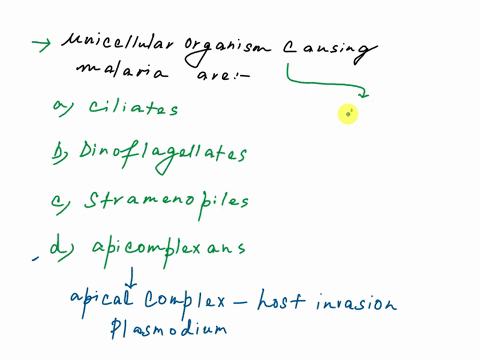 → Unicellular organism causing
malaria are:-
a, ciliates
b, Dinoflagellates
c, Stramenopiles
d, apicomplexans
apical complex - host invasion
Plasmodium